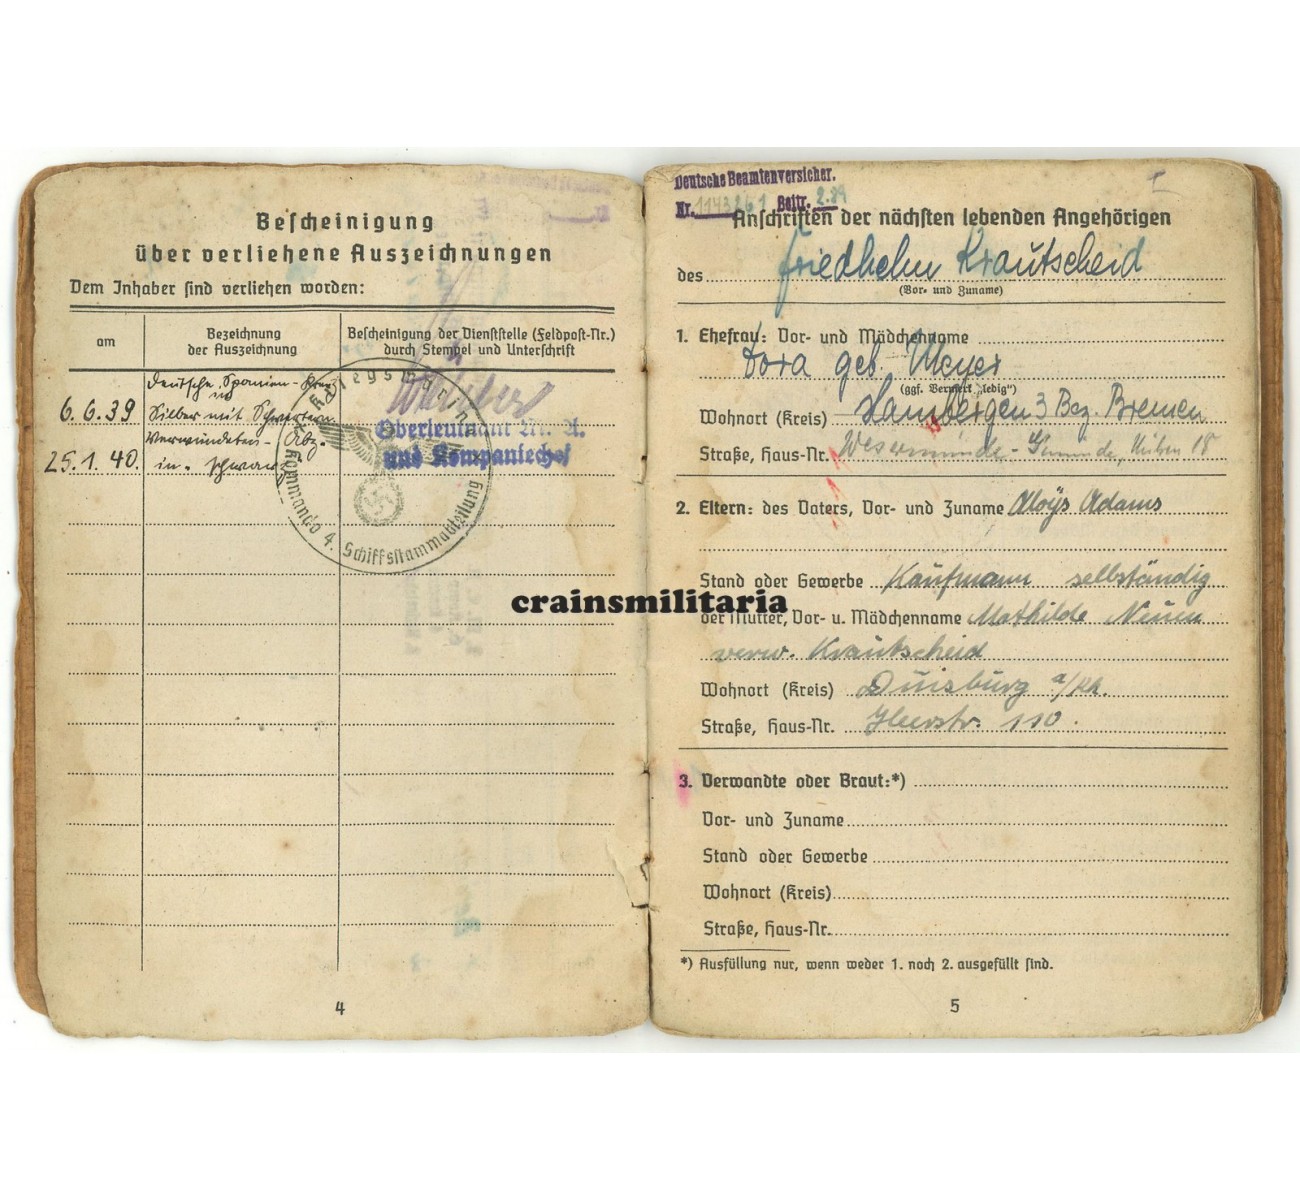 Bescheinigung
über verliehene Auszeichnungen
Dem Inhaber sind verliehen worden:
am
Bezeichnung
der Auszeichnung
Bescheinigung der Dienststelle (Feldpost-Nr.)
durch Stempel und Unterschrift
Deutsche Spanien-Kreuz
in
6.6.39 Silber mit Schwertern
Verwundeten-Abz.
25.1.40. in schwarz
Oberleutnant M. A.
und Kompaniechef
Kriegsmarine
Kommando 4. Schiffsstammabteilung
4
Deutsche Beamtenversicher.
Nr. 1143261 Beitr. 2.89
Anschriften der nächsten lebenden Angehörigen
des Friedhelm Krautscheid
(Vor- und Zuname)
1. Ehefrau: Vor- und Mädchenname
Dora geb. Meyer
(ggf. Vermerk „ledig")
Wohnort (Kreis) Hambergen 3 Bez. Bremen
Straße, Haus-Nr. Wesermünde-
2. Eltern: des Vaters, Vor- und Zuname Aloys Adams
Stand oder Gewerbe Kaufmann selbständig
der Mutter, Vor- u. Mädchenname Mathilde
verw. Krautscheid
Wohnort (Kreis) Duisburg a/Rh.
Straße, Haus-Nr. 110.
3. Verwandte oder Braut:*)
Vor- und Zuname
Stand oder Gewerbe
Wohnort (Kreis)
Straße, Haus-Nr.
*) Ausfüllung nur, wenn weder 1. noch 2. ausgefüllt sind.
5
crainsmilitaria